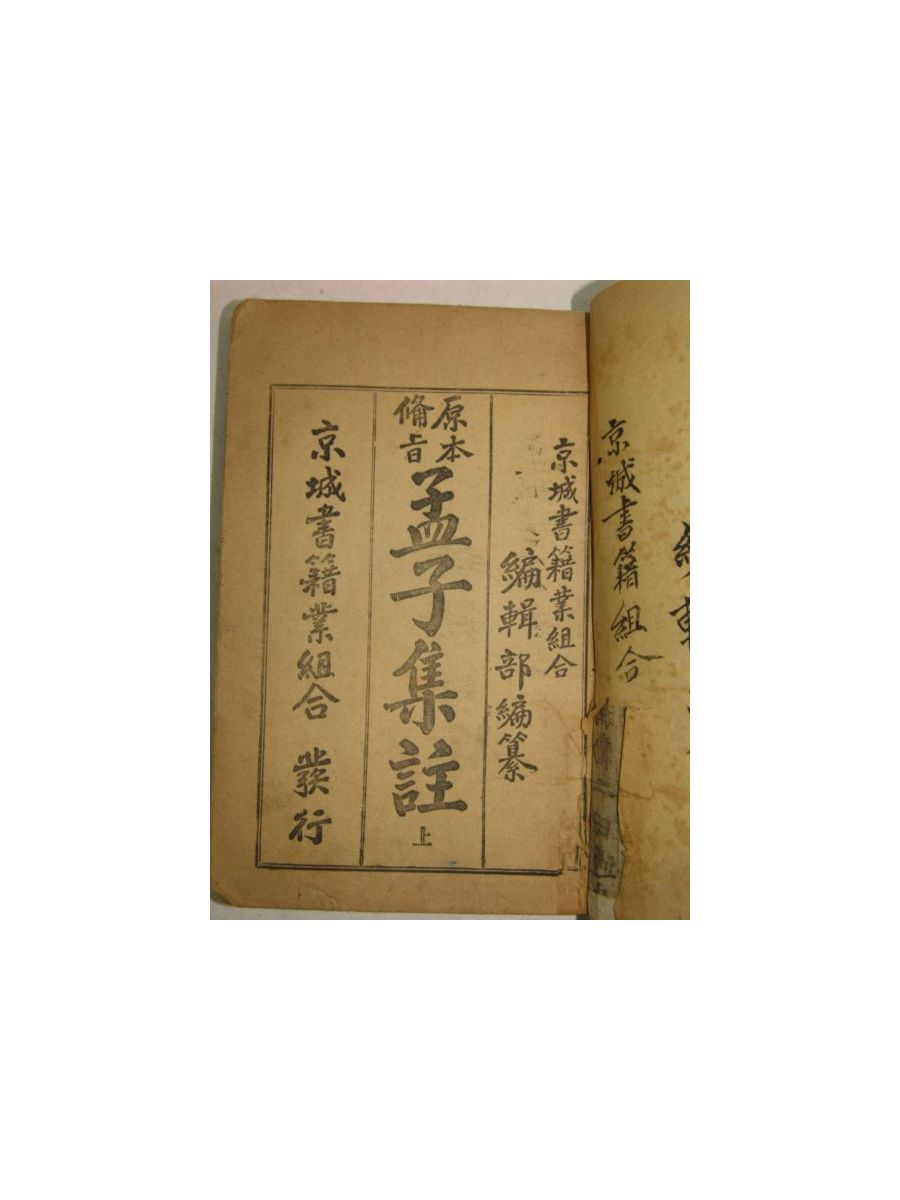 京城書籍組合
京城書籍業組合
編輯部編纂
原本
備旨
孟子集註
上
京城書籍業組合 發行